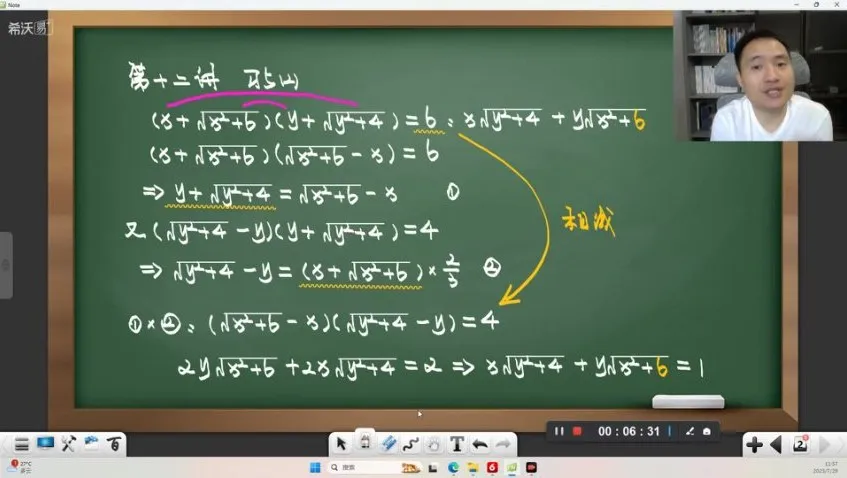 Note
希沃
第十二讲
(x+√x²+6)(y+√y²+4)=6, x√y²+4 + y√x²+6
(x+√x²+6)(√x²+6-x)=6
⇒ y+√y²+4=√x²+6-x ①
又(√y²+4-y)(y+√y²+4)=4
⇒ √y²+4-y=(x+√x²+6)×2/3 ②
相减
①×②:(√x²+6-x)(√y²+4-y)=4
2y√x²+6+2x√y²+4=2⇒x√y²+4+y√x²+6=1
00:06:31
27°C
搜索
12:57
2023/7/29